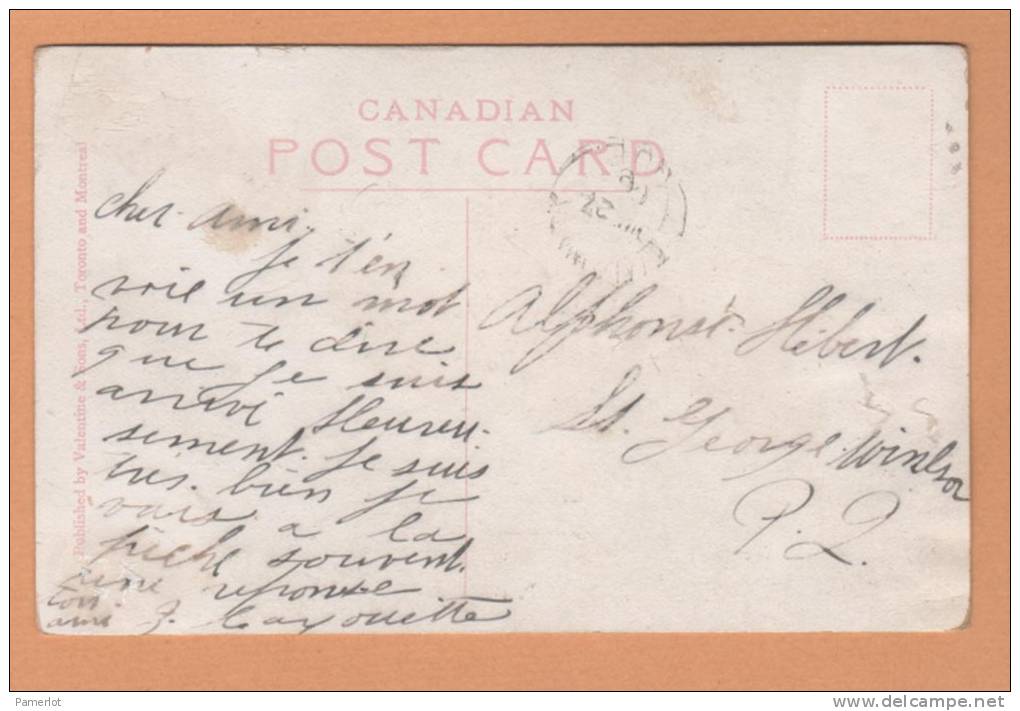 CANADIAN
POST CARD
Published by Valentine & Sons, Ltd., Toronto and Montreal
cher ami.
Je t'en
voie un mot
pour te dire
que je suis
arrivé Heureu-
sement. Je suis
très bien je
vais a la
pêche souvent.
une reponse
ton
ami J. Cayouette
Alphonse Hébert.
St. George Winsor
P. Q.
Pamerlot
www.delcampe.net